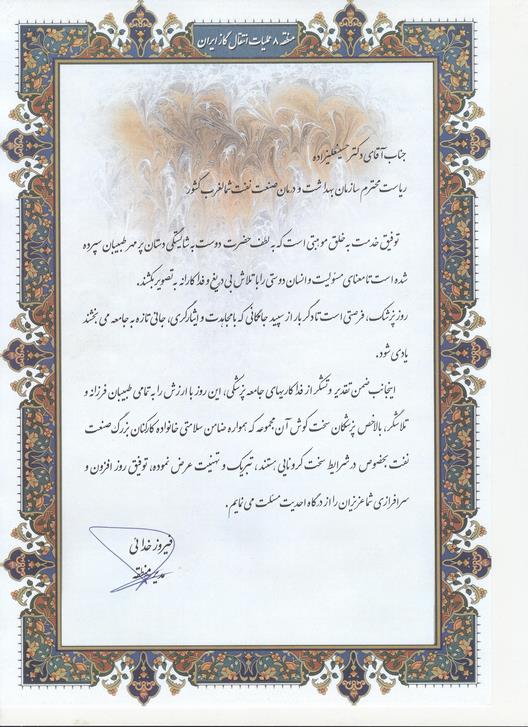 منطقه ۸ عملیات انتقال گاز ایران
جناب آقای دکتر حسینعلیزاده
ریاست محترم سازمان بهداشت و درمان صنعت نفت شمالغرب کشور
توفیق خدمت به خلق موهبتی است که به لطف حضرت دوست به شایستگی دستان پر مهر طبیبان سپرده
شده است تا معنای مسئولیت و انسان دوستی را با تلاش بی دریغ و فداکارانه به تصویر بکشند.
روز پزشک، فرصتی است تا دگر بار از سپید جامگانی که با مجاهدت و ایثارگری، جانی تازه به جامعه می بخشند
یادی شود.
اینجانب ضمن تقدیر و تشکر از فداکاریهای جامعه پزشکی، این روز با ارزش را به تمامی طبیبان فرزانه و
تلاشگر، بالاخص پزشکان سخت کوش آن مجموعه که همواره ضامن سلامتی خانواده کارکنان بزرگ صنعت
نفت بخصوص در شرایط سخت کرونایی هستند، تبریک و تهنیت عرض نموده، توفیق روز افزون و
سرافرازی شما عزیزان را از درگاه احدیت مسئلت می نمایم.
فیروز خدائی
مدیر منطقه